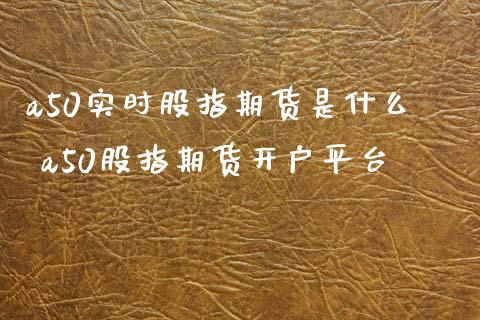 a50实时股指期货是什么
a50股指期货开户平台